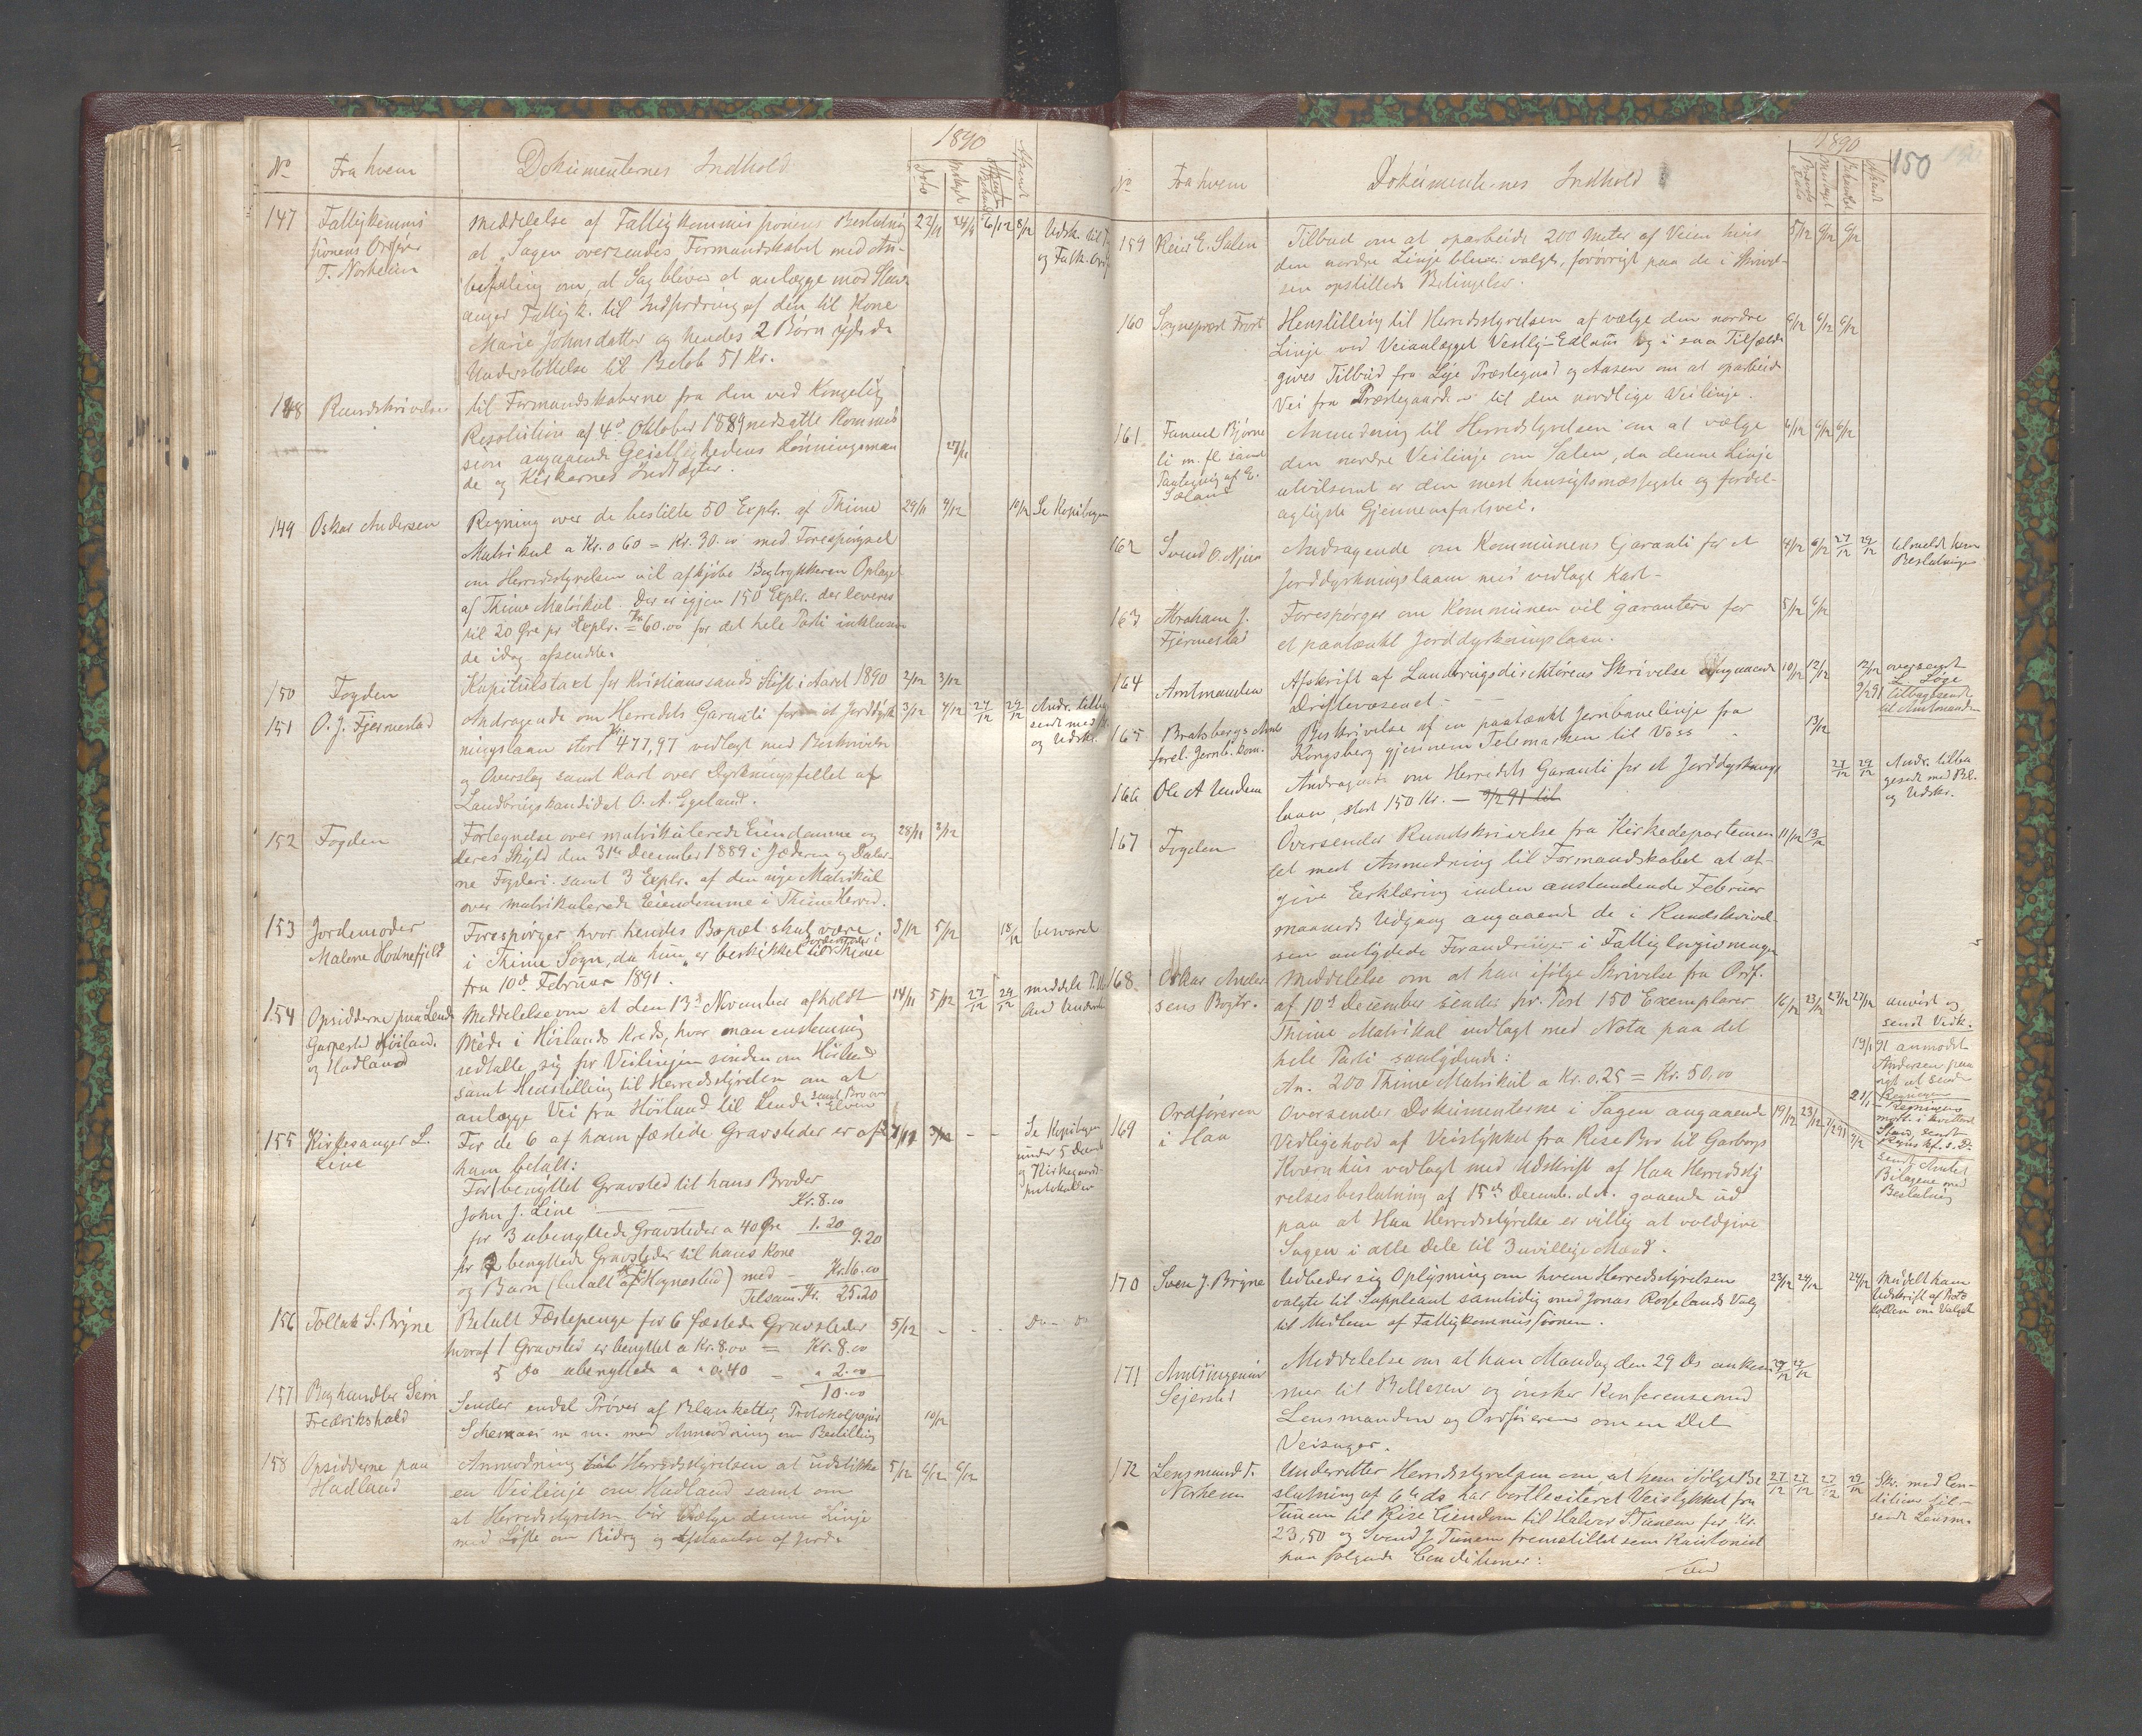 1890
No Fra hvem Dokumenternes Indhold Dato
147 Fattigkommis Meddelelse af Fattigkommissionens Beslutning 22/11 24/11 6/12 8/12 Udsk. til
sionens Ordfører at "Sagen oversendes Formandskabet med An- og Fattk.
T. Norheim befaling om, at Sag bliver at anlægge mod Stav-
anger Fattigk. til Indfordring af den til Kone
Marie Johnsdatter og hendes 2 Børn ydede
Understøttelse til Beløb 51 Kr.
148 Rundskrivelse til Formandskaberne fra den ved Kongelig
Resolution af 4de Oktober 1889 nedsatte Kommis
sion angaaende Geistlighedens Lønningsmaa 27/11
de og Kirkernes Indtægter.
149 Oskar Andersen Regning over de bestilte 50 Explr. af Thime 29/11 4/12 10/12 Se Kopibogen
Matrikul a Kr. 0 60 = Kr. 30.00 med Forespørgsel
om Herredsstyrelsen vil afkjøbe Bogtrykkeren Oplaget
af Thime Matrikul. Der er igjen 150 Explr. der leveres
til 20 Øre pr Explr. = Kr. 60.00 for det hele Parti inklusive
de idag afsendte.
150 Fogden Kapitulstaxt for Kristianssands Stift i Aaret 1890 2/12 3/12
151 O. J. Fjermestad Andragende om Herredets Garanti for et Jorddyrk 3/12 4/12 27/12 29/12 Andr. tilbag
ningslaan stort Kr. 477,97 vedlagt med Beskrivelse sendt med
og Overslag samt Kart over Dyrkningsfeltet af og Udskr.
Landbrugskandidat O. A. Egeland.
152 Fogden Fortegnelse over matrikulerede Eiendomme og 28/11 2/12
deres Skyld den 31te December 1889 i Jæderen og Daler-
ne Fogderi samt 3 Explr. af den nye Matrikul
over matrikulerede Eiendomme i Thime Herred.
153 Jordemoder Forespørger hvor hendes Bopæl skal være 3/12 5/12 18/12 besvaret
Malene Hodnefjeld i Thime Sogn, da hun er beskikket til Jordemoder i Thime
fra 10de Februar 1891.
154 Opsidderne paa Lende Meddelelse om at den 13de November afholdt 14/11 5/12 27/12 29/12 meddelt
Garpestad Høiland Møde i Hørlands Kreds, hvor man enstemmig
og Hadland udtalte sig for Veilinjen sønden om Hørland
samt Henstilling til Herredsstyrelsen om at
anlægge Vei fra Hørland til Lende samt Bro over Elven
155 Kirkesanger L. For de 6 af ham fæstede Gravsteder er af 2/12 - - Se Kopibogen
Line ham betalt: under 5 Decemb
For 1 benyttet Gravsted til hans Broder og Kirkegaards-
John J. Line — — Kr. 8.00 protokollen
for 3 ubenyttede Gravsteder a 40 Øre 1.20 9.20
for 2 benyttede Gravsteder til hans Kone
og Barn (betalt af Hognestad) med — Kr. 16.00
Tilsam. Kr. 25.20
156 Tollak S. Bryne Betalt Fæstepenge for 6 fæstede Gravsteder 5/12 - - - Do - Do
hvoraf 1 Gravsted er benyttet a Kr. 8.00 = Kr. 8.00
5 Do ubenyttede a " 0.40 — " 2.00
10.00
157 Boghandler Sem Sender endel Prøver af Blanketter, Protokolpapir 10/12
Fredrikshald Schemaer m. m. med Anmodning om Bestilling
158 Opsidderne paa Anmodning til Herredsstyrelsen at udstikke 5/12 6/12 6/12
Hadland en Veilinje om Hadland samt om
at Herredsstyrelsen bør vælge denne Linje
med Løfte om Bidrag og Afstaaelse af Jord.
1890 150
No Fra hvem Dokumenternes Indhold
159 Reier E. Salen Tilbud om at oparbeide 200 Meter af Veien hvis 5/12 6/12 6/12
den nordre Linje bliver valgt, forøvrigt paa de i Skrivel-
sen opstillede Betingelser.
160 Sogneprest Frost Henstilling til Herredsstyrelsen af vælge den nordre 6/12 6/12 6/12
Linje ved Veianlægget Vestly-Edland og i saa Tilfælde
gives Tilbud fra Lye Præstegaard og Aasen om at oparbeide
Vei fra Præstegaarden til den nordlige Veilinje.
161 Fanuel Bjørne Anmodning til Herredsstyrelsen om at vælge 6/12 6/12 6/12
li m. fl. samt den nordre Veilinje om Salen, da denne Linje
Paategning af E. utvilsomt er den mest hensigtsmæssigste og fordel-
Sæland agligste Gjennemfartsvei.
162 Svend O. Njaa Andragende om Kommunens Garanti for et 4/12 6/12 27/12 29/12 tilmeldt ham
Jorddyrkningslaan med vedlagt Kart- Beslutningen
163 Abraham J. Forespørger om Kommunen vil garantere for 5/12 6/12
Fjermestad et paatænkt Jorddyrkningslaan.
164 Amtmanden Afskrift af Landbrugsdirektørens Skrivelse angaaende 10/12 12/12 12/12 oversendt
Driftevæsenet - 9/2 91 tilbagesendt
til Amtmanden
165 Bratsbergs Amts Beskrivelse af en paatænkt Jernbanelinje fra 13/12
forel. Jernb. Kom. Kongsberg gjennem Telemarken til Voss
166 Ole A Undem Andragende om Herredets Garanti for et Jorddyrknings 27/12 29/12 Andr. tilba
laan, stort 150 Kr. — 9/2 91 til gesendt med Bl.
og Udskr.
167 Fogden Oversender Rundskrivelse fra Kirkedepartemen 11/12 13/12
tet med Anmodning til Formandskabet at af-
give Erklæring inden anstundende Februar
maaneds Udgang angaaende de i Rundskrivel-
sen antydede Forandringer i Fattiglovgivningen
168 Oskar Ander Meddelelse om at han ifølge Skrivelse fra Ordf.
sens Bogtr. af 10de December sender pr. Post 150 Exemplarer 16/12 23/12 27/12 27/12 anvist og
Thime Matrikul indlagt med Nota paa det sendt Vedk.
hele Parti saalydende: 19/1 91 anmodet
An. 200 Thime Matrikul a Kr. 0.25 = Kr. 50,00 Andersen paa
nyt at sende
Regningen
169 Ordføreren Oversender Dokumenterne i Sagen angaaende 19/12 23/12 7/2 91 9/2
i Haa Vedligehold af Veistykket fra Rise Bro til Garborgs
Kværnhus vedlagt med Udskrift af Haa Herredssty sendt Amtet
relses beslutning af 15de Decemb. d.A. gaaende ud Bilagene med
paa at Haa Herredsstyrelse er villig at voldgive Beslutning
Sagen i alle Dele til 3 uvillige Mænd.
170 Sven J. Bryne Udbeder sig Oplysning om hvem Herredsstyrelsen 23/12 24/12 24/12 Meddelt ham
valgte til Suppleant samtidig med Jonas Rosselands Valg Udskrift af Proto
til Medlem af Fattigkommissionen. kollen om Valget
171 Amtsingeniør Meddelelse om at han Mandag den 29 Ds ankom 27/12 27/12
Sejersted mer til Bellesen og ønsker Konferense med
Lensmanden og Ordføreren om en Del
Veisager.
172 Lensmand T. Underretter Herredsstyrelsen om at han ifølge Be 27/12 27/12 27/12 29/12 Skr. med Con-
Norheim slutning af 6te ds har bortleciteret Veistykket fra ditions til-
Tunem til Rise Eiendom til Halvor S. Tunem for Kr. sendt Lensm.
23,50 og Svend J. Tunem fremstillet som Kautionist
paa følgende Conditioner: